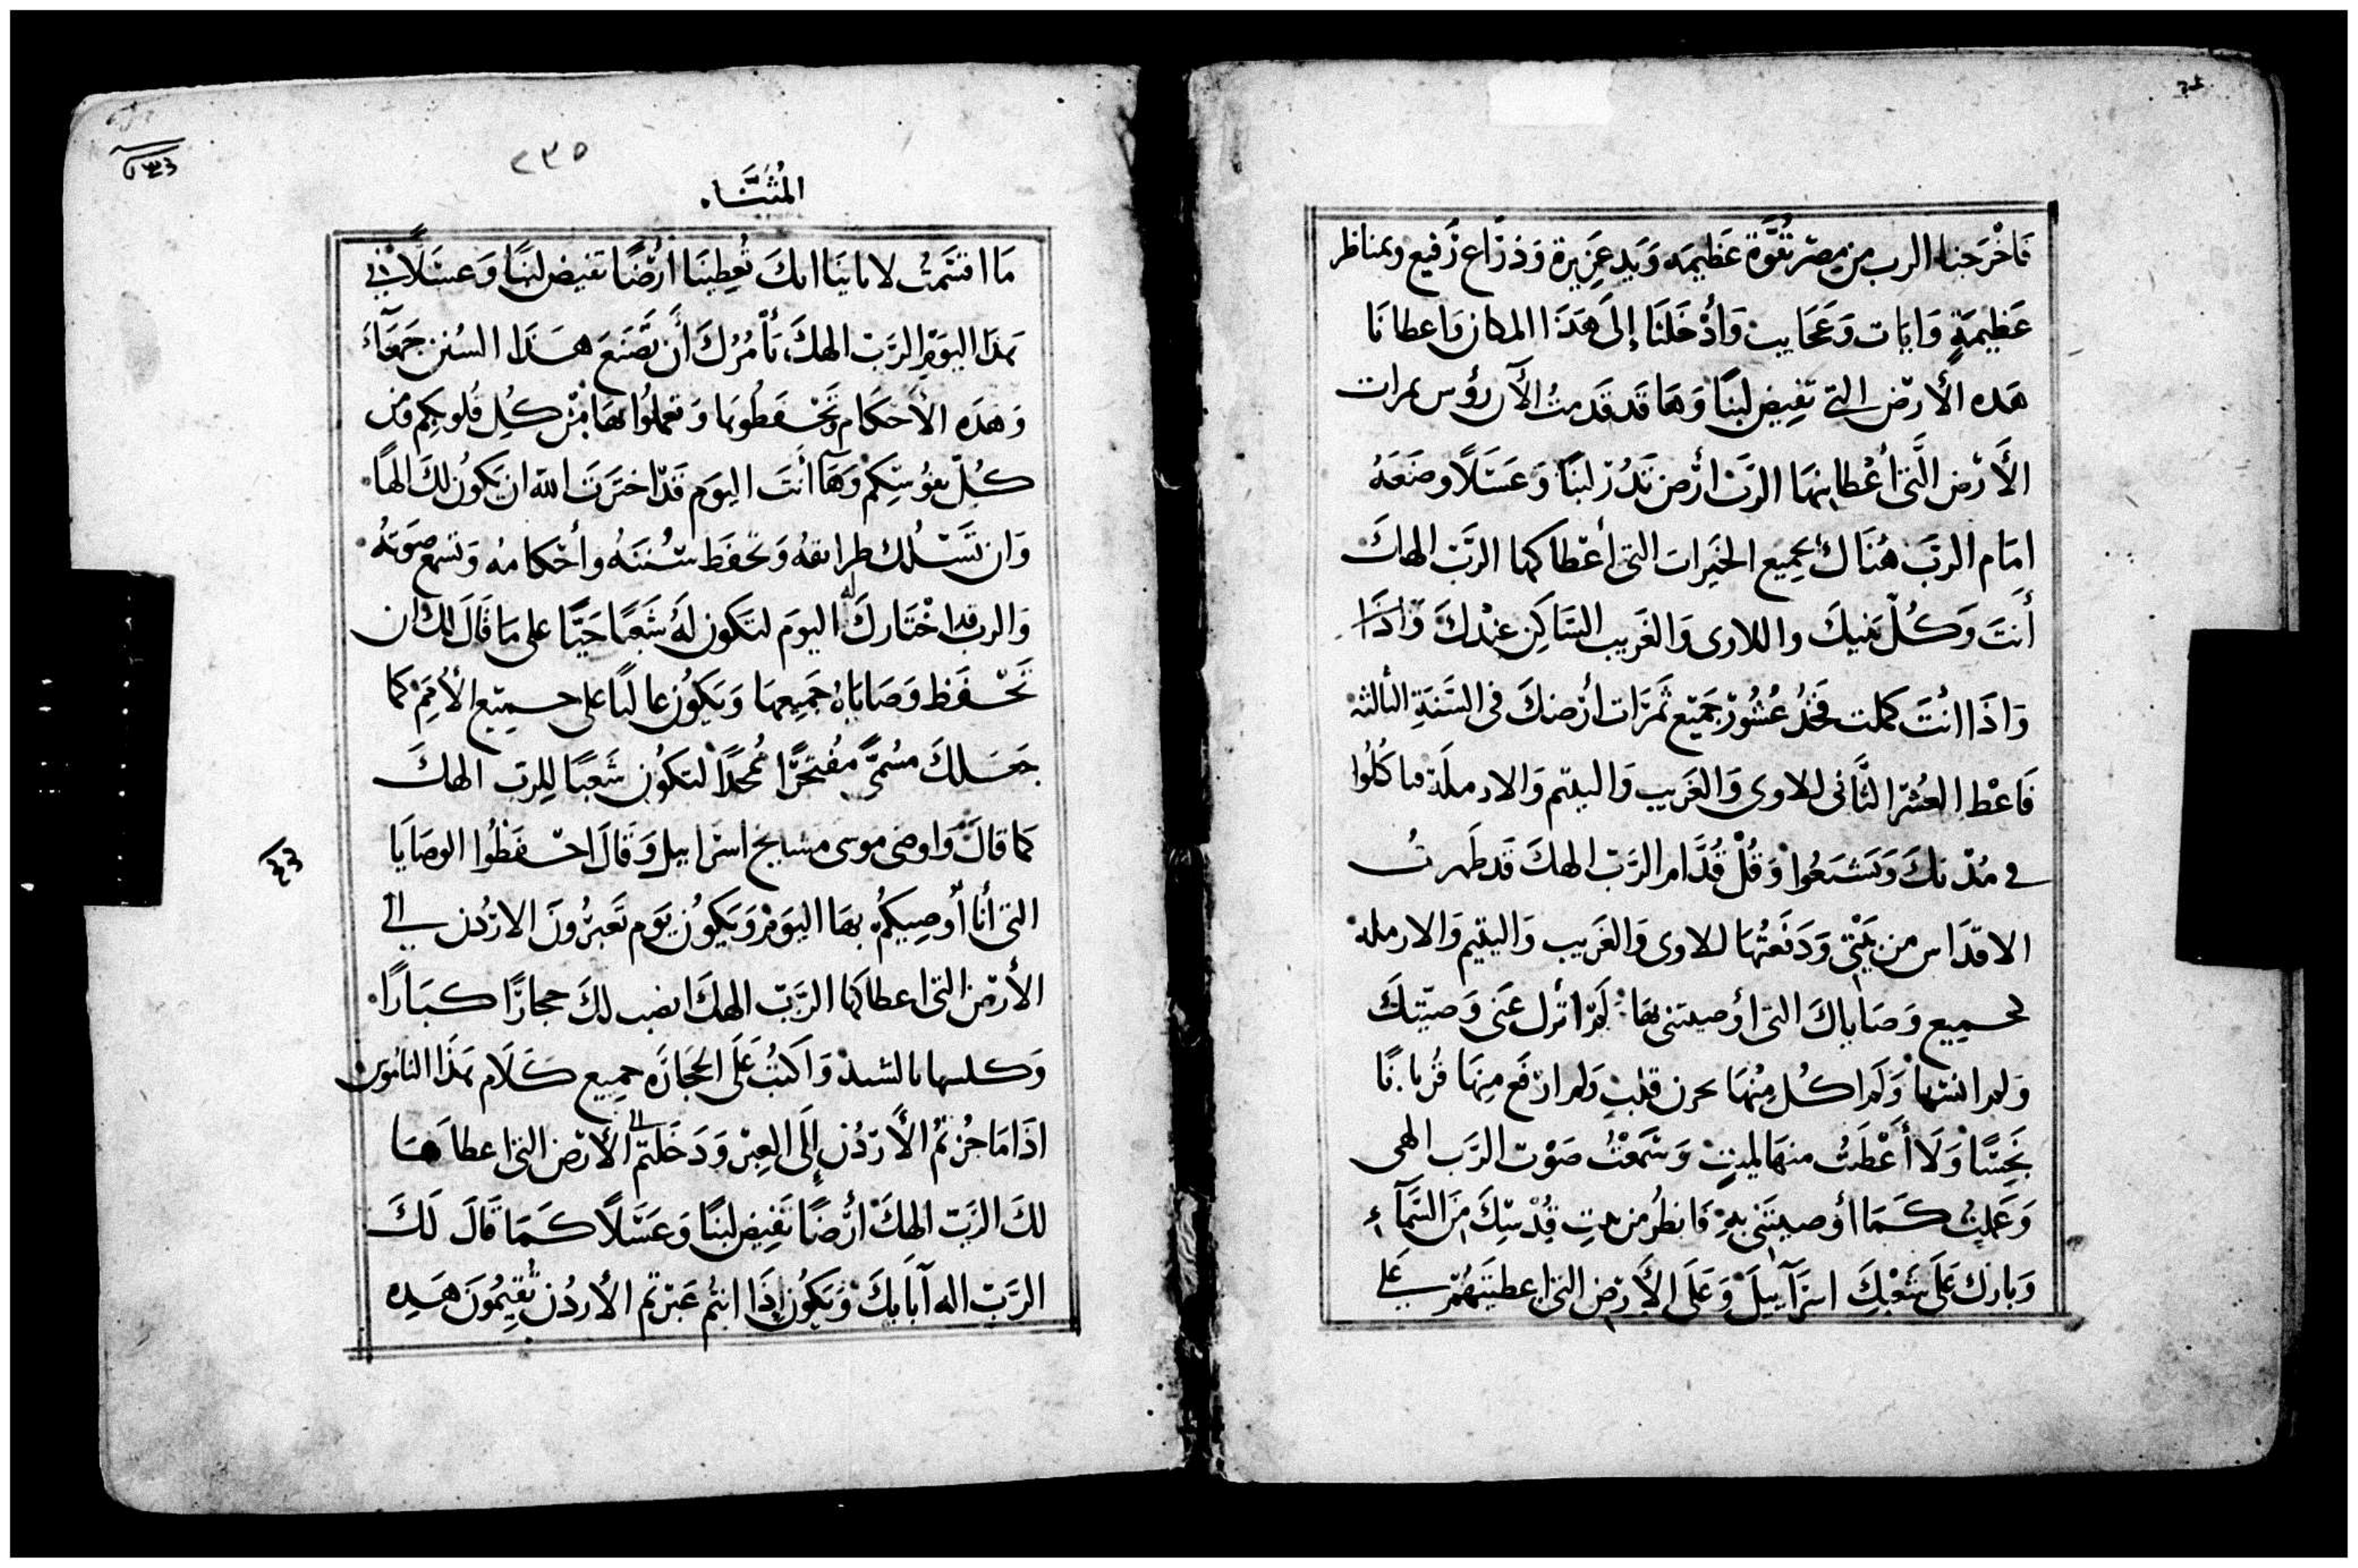 فَاخْرَجنا الرب من مِصْر بقُوَّة عَظيمه وَيَد عَزيزة وَذرَاع رَفيع وبمناظر
عَظيمَةٍ وَايَات وَعَجَايب وَأدْخَلَنَا إلىَ هَذَا المكان وَاعطانَا
هَده الأرْض التي تفيض لبنًا وَهَا قَد قَدمتُ الآن رؤس ثمرات
الأَرْض الَّتى أعْطانيهَا الرَبّ ارْض تَدُرّ لبنًا وَعَسَلًا وضَعَهُ
امَام الرَبّ هُنَاك بجميع الخيَرات التى أعْطاكها الرَبّ الهكَ
أنتَ وَكُلّ بَنيكَ واللاوى وَالغَريب السَاكِن عِنْدكَ وَاذَا
وَاذَا انْتَ كملت فخُذ عُشُورْ جَميْع ثَمَرَات أرْضكَ فى السَنَةِ الثالثه
فَاعْط العُشرَ الثَّانى للاوى وَالغَريب وَاليتيم وَالارملَة فياكُلُوا
في مُدْنكَ وَيَشبَعُوا وَقُلْ قُدَّام الرَّبّ الهكَ قَد طَهرتُ
الاقدَاس من بَيْتى وَدَفَعْتُهَا للاوى وَالغَريب وَاليَتيم وَالارمله
لجميع وَصَاياكَ التى أوصيتنى بهَا لَم اترك عَنى وَصيّتكَ
وَلم انسَهَا وَلَم اكُل مِنْهَا بحزن قلبٍ وَلم ارْفَع مِنهَا قُربانًا
نَجسًا وَلَا أعْطَيتُ منهَا لميتٍ وَسَمَعْتُ صَوْت الرَب الهى
وَعَملتُ كَمَا أوصيتَنى بهِ فَانظُر من بيتِ قُدْسِكَ مِنَ السَّمآء
وَبارك عَلى شَعْبكَ اسرَآييلَ وَعَلى الأرْض التى اعطيتَهُمْ على
٢٣٥
المُثَنَّاه
مَا اقتسَمتُ لابائنَا انكَ تُعطينَا أرْضًا تفيض لبنًا وَعسَلًا في
هذَا اليوَم الرَبّ الهكَ يأمُرُكَ أن تَصْنَعَ هَذَا السُنن جمَعآء
وَهذَه الأحكَام وَتحْفَظُوهَا وَتعملُوا بهَا مِنْ كُل قُلوبكم وَمن
كُلّ نفوُسِكم وَهَآ أنتَ اليوَم قَد اخترَتَ الله ان يَكوُن لكَ الهًا
وَان تَسْلُك طرايقهُ وَتحفَظ سُنَنهُ وأحْكامهُ وَتَسمع صَوتهُ
وَالرب قد اخْتَارَكَ اليوَم لتَكون لَهُ شَعبًا حَيًّا على مَا قَالَ لكَ ان
تَحْفَظ وَصَايَاهُ جَميعهَا وَيَكوُن عاليًا على جميْع الأمَم كَما
جَعَلكَ مسُمَّى مُفتَخرًا مُمجَّدًا لتكوُن شَعبًا للرب الهكَ
كما قالَ وَاوصى موسى مشايخ اسرَاييل وَقَالَ احْفظُوا الوصَايَا
التى أنَا أوصِيكمُ بهَا اليوَم وَيَكوُن يَوم تَعبرُونَ الارْدُن الي
الأرْض التى اعطاكهَا الرَّبّ الهكَ انصب لكَ حجَارًا كبَارًا
وَكلسها بالشيد وَاكتُب عَلَى الحجَارَه جميع كَلَام هَذَا النامُوس
اذَا مَا جُزتمُ الأرْدُن إلَى العِبْر وَدَخَلتمُ الى الأرْض التى اعطاهَا
لكَ الرَبّ الهكَ أرْضًا تَفيض لبَنًا وَعَسَلًا كَمَا قَالَ لَكَ
الرَبّ اله آبَايكَ وَيكوُن إذَا انتُم عَبَرْتمُ الأردُن تُقِيمُونَ هَذِه